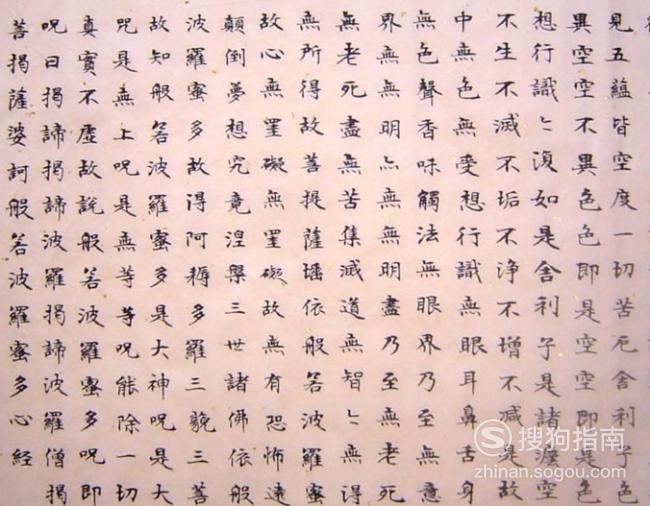 見五蘊皆空度一切苦厄舍利子色
異空空不異色色即是空空即是色
想行識〻復如是舍利子是諸灋空
不生不滅不垢不淨不增不減是故
中無色無受想行識無眼耳鼻舌身
無色聲香味觸法無眼界乃至無意
界無無明亦無無明盡乃至無老死
無老死盡無苦集滅道無智〻無得
無所得故菩提薩埵依般若波羅蜜
故心無罣礙無罣礙故無有恐怖遠
顛倒夢想究竟涅槃三世諸佛依般
波羅蜜多故得阿耨多羅三藐三菩
故知般若波羅蜜多是大神呪是大
呪是無上呪是無等等呪能除一切
真實不虛故說般若波羅蜜多呪即
呪曰揭諦揭諦波羅揭諦波羅僧揭
菩揭薩婆訶般若波羅蜜多心經
搜狗指南
zhinan.sogou.com